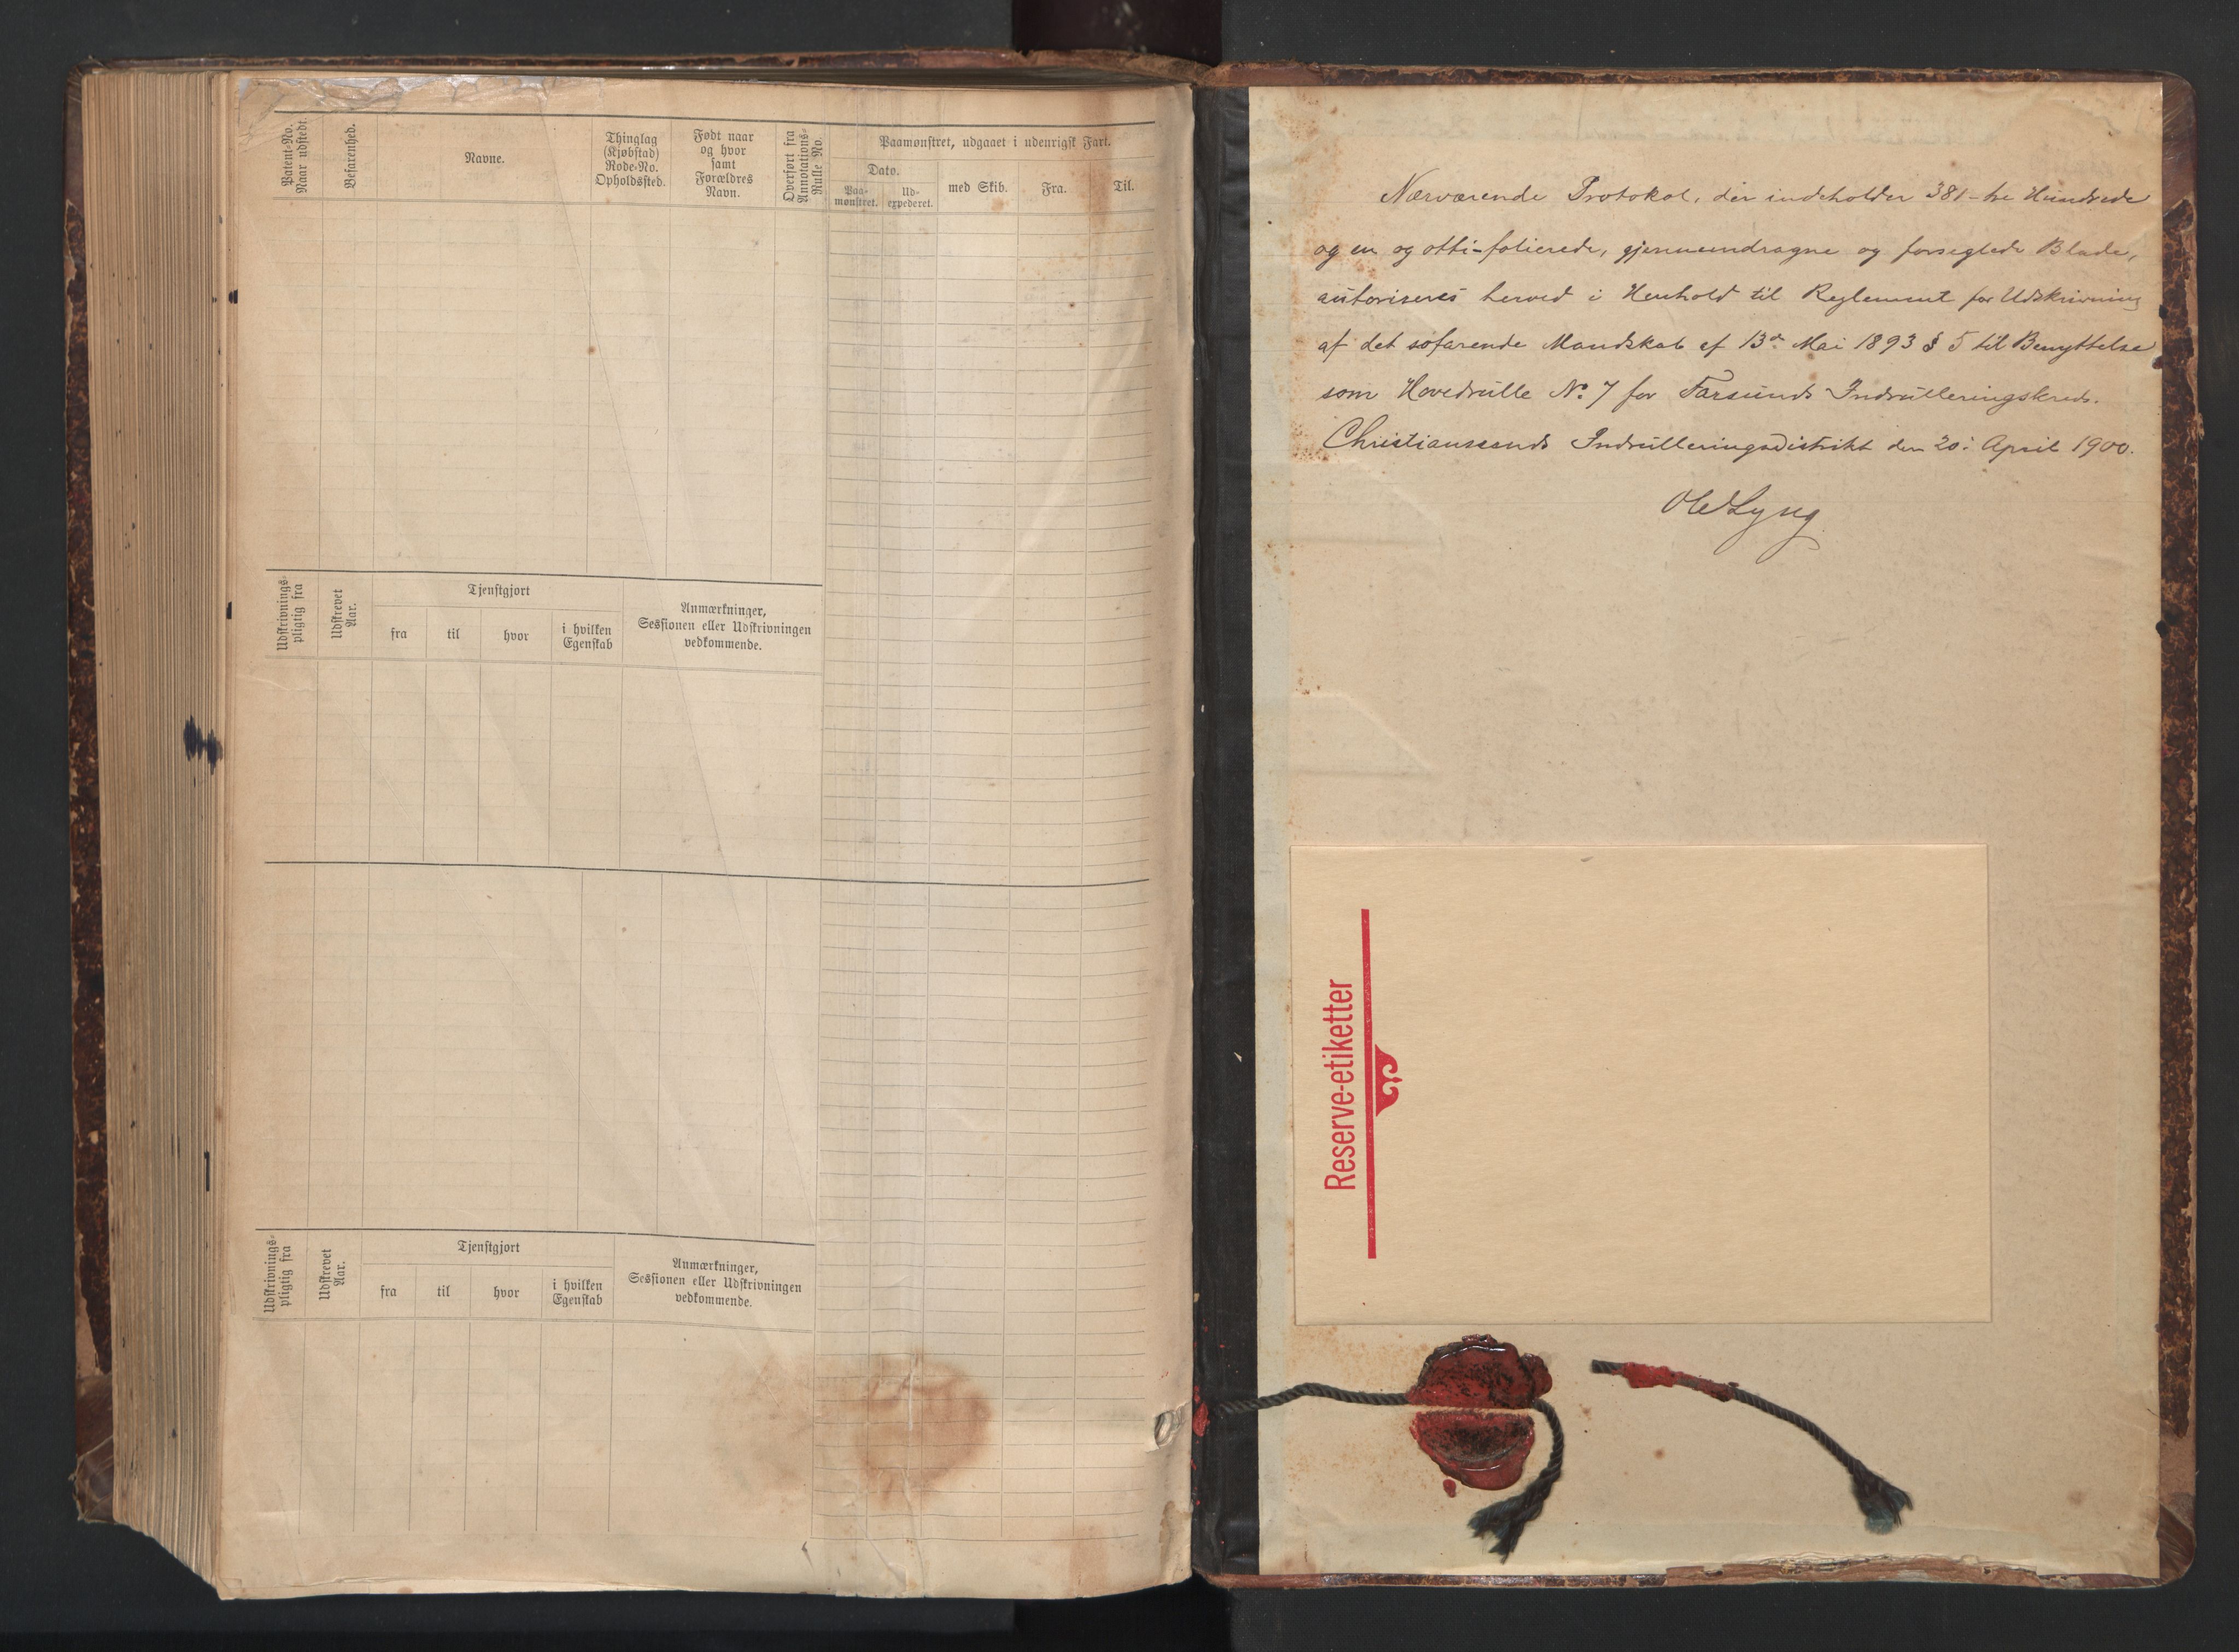 Patent-No.
Naar udstedt.
Befarenhed.
Navne.
Thinglag
(Kjøbstad)
Rode-No.
Opholdssted.
Født naar
og hvor
samt
Forældres
Navn.
Overført fra
Annotations-
Rulle No.
Paamønstret, udgaaet i udenrigsk Fart.
Dato.
Paa-
mønstret.
Ud-
expederet.
med Skib.
Fra.
Til.
Udskrivnings-
pligtig fra
Udskrevet
Aar.
Tjenstgjort
fra
til
hvor
i hvilken
Egenskab
Anmærkninger,
Sessionen eller Udskrivningen
vedkommende.
Udskrivnings-
pligtig fra
Udskrevet
Aar.
Tjenstgjort
fra
til
hvor
i hvilken
Egenskab
Anmærkninger,
Sessionen eller Udskrivningen
vedkommende.
Nærværende Protokol, der indeholder 381 - tre Hundrede
og en og otti - folierede, gjennemdragne og forseglede Blade,
autoriseres herved i Henhold til Reglement for Udskrivning
af det søfarende Mandskab af 13de Mai 1893 § 5 til Benyttelse
som Hovedrulle No. 7 for Farsunds Indrulleringskreds.
Christianssands Indrulleringsdistrikt den 20. April 1900.
Reserve-etiketter